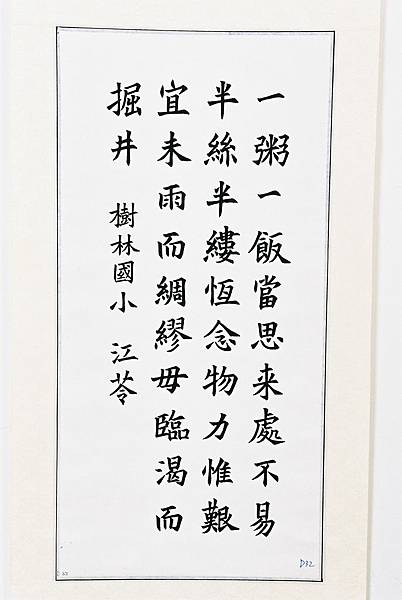 一粥一飯當思来處不易
半絲半縷恆念物力惟艱
宜未雨而綢繆毋臨渴而
掘井 樹林國小 江苓
D32